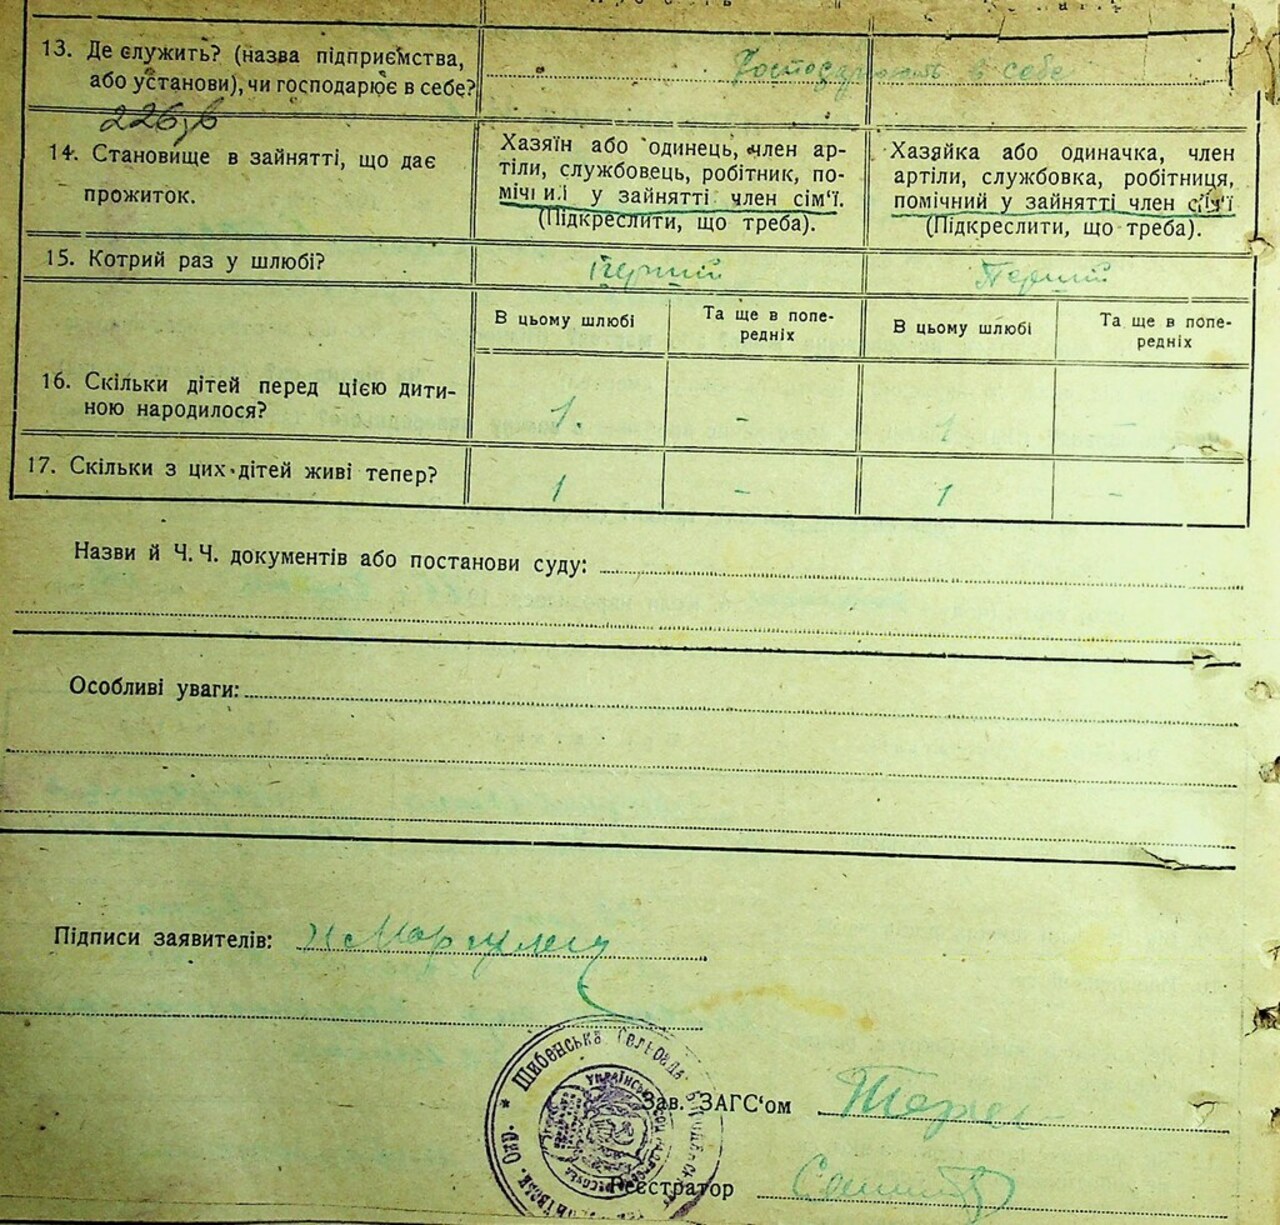 13. Де служить? (назва підприємства,
або установи), чи господарює в себе?
Господарюють в себе
226,в
14. Становище в зайнятті, що дає
прожиток.
Хазяїн або одинець, член ар-
тіли, службовець, робітник, по-
мічний у зайнятті член сім'ї.
(Підкреслити, що треба).
Хазяйка або одиначка, член
артіли, службовка, робітниця,
помічний у зайнятті член сім'ї
(Підкреслити, що треба).
15. Котрий раз у шлюбі?
Перший
Перший
В цьому шлюбі
Та ще в попе-
редніх
В цьому шлюбі
Та ще в попе-
редніх
16. Скільки дітей перед цією дити-
ною народилося?
1.
-
1
-
17. Скільки з цих дітей живі тепер?
1
-
1
-
Назви й Ч. Ч. документів або постанови суду:
Особливі уваги:
Підписи заявителів:
Шибенська Сельрада
Українськ
Зав. ЗАГС'ом
Реєстратор